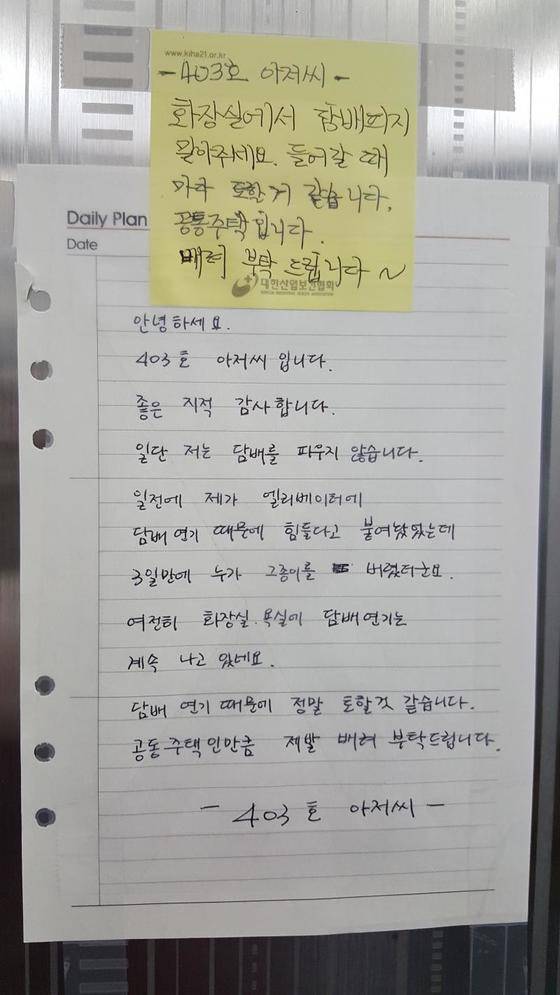 www.kiha21.or.kr
-403호 아저씨-
화장실에서 담배피지
말아주세요. 들어갈 때
마다 토할 거 같습니다.
공통주택입니다.
배려 부탁 드립니다~
대한산업보건협회
Daily Plan
Date
안녕하세요.
403호 아저씨 입니다.
좋은 지적 감사합니다.
일단 저는 담배를 파우지 않습니다.
일전에 제가 엘리베이터에
담배 연기 때문에 힘들다고 붙여놨었는데
3일만에 누가 그종이를 버렸더군요.
여전히 화장실.욕실에 담배연기는
계속 나고 있네요.
담배 연기 때문에 정말 토할것 같습니다.
공동주택인만큼 제발 배려 부탁드립니다.
- 403호 아저씨 -